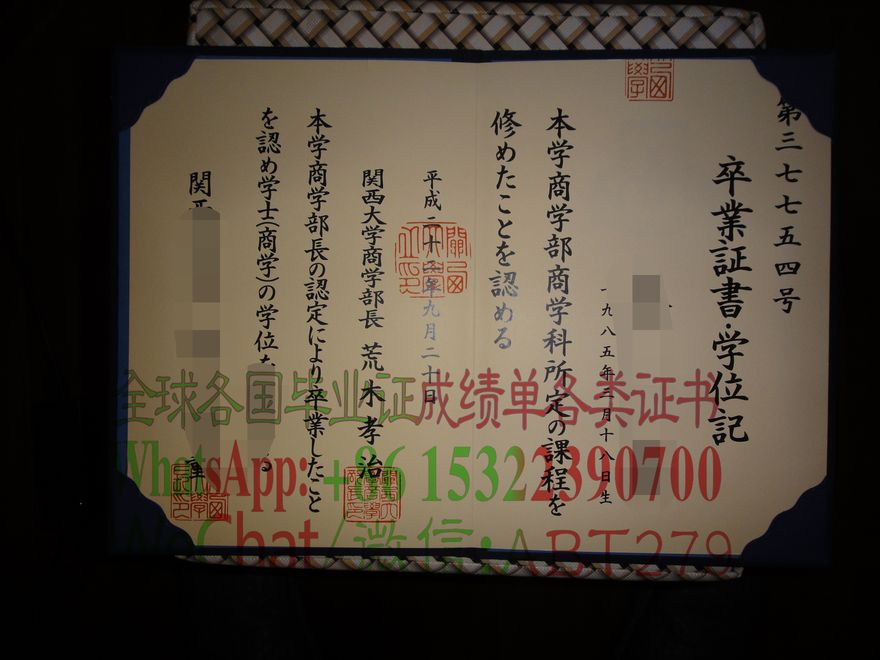 第三七七五四号
卒業証書・学位記
一九八五年三月十八日生
本学商学部商学科所定の課程を
修めたことを認める
平成二十四年九月二十日
関西大学商学部長 荒木孝治
本学商学部長の認定により卒業したこと
を認め学士(商学)の学位を
関西
全球各国毕业证成绩单各类证书
WhatsApp: +86 15322390700
WeChat/微信:ABT279